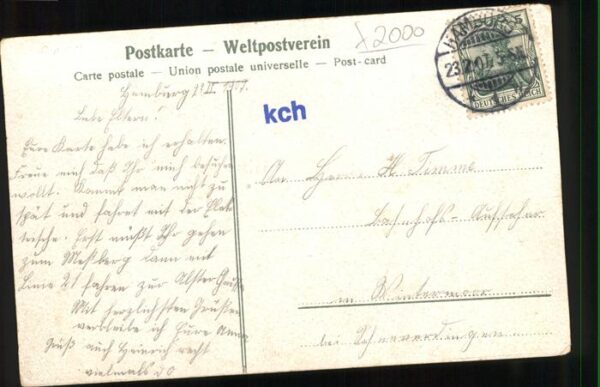 x2000
Postkarte – Weltpostverein
Carte postale – Union postale universelle – Post-card
HAMBURG
23.2.07
DEUTSCHES REICH
5
kch
Hamburg 1907.
Liebe Eltern!
Eure Karte habe ich erhalten.
Freue mich daß Ihr mich besuchen
wollt. Kommt man nicht zu
spät und fahret mit der Elek-
trische. Erst müßt Ihr gehen
zum Meßberg dann mit
Linie 21 fahren zur Alster
Mit herzlichsten Grüßen
verbleibe ich Eure Anna
Gruß auch Heinrich recht
vielmals
An Herrn H. Timme
Bahnhofs-Aufseher
in Wintermoor
bei Schneverdingen